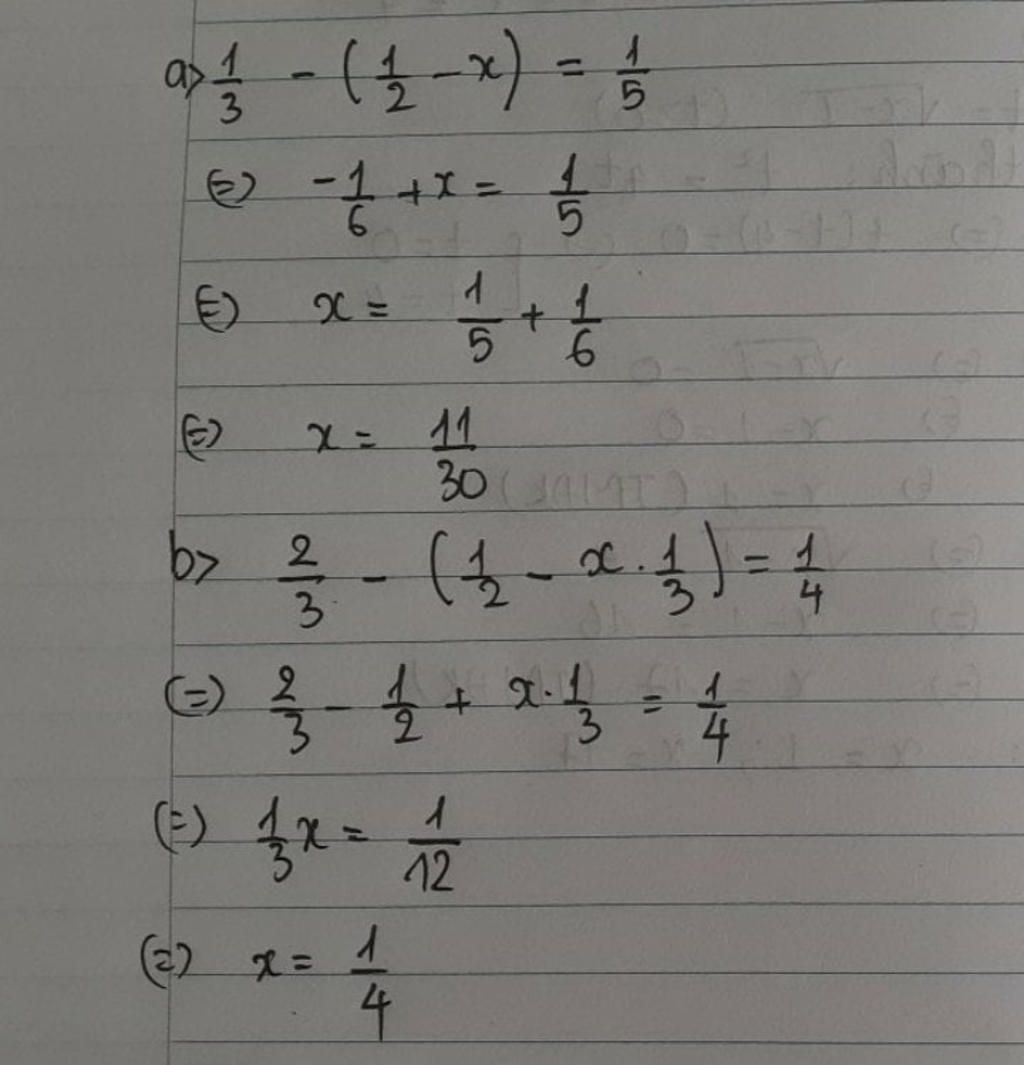 a> 1/3 - (1/2 - x) = 1/5
(=) -1/6 + x = 1/5
(=) x = 1/5 + 1/6
(=) x = 11/30
b> 2/3 - (1/2 - x . 1/3) = 1/4
(=) 2/3 - 1/2 + x . 1/3 = 1/4
(=) 1/3 x = 1/12
(=) x = 1/4